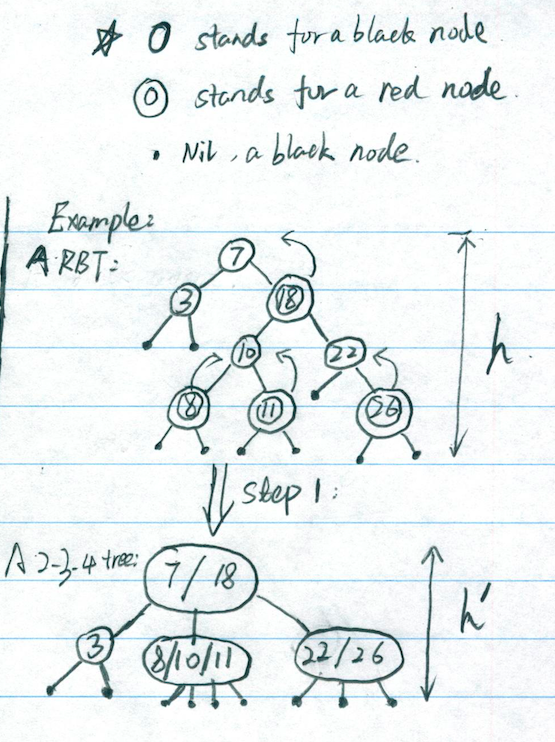 ☆ O stands for a black node
O stands for a red node.
· Nil, a black node.
Example:
A RBT:
7
3 18
10 22
8 11 26
h
Step 1:
A 2-3-4 tree:
7/18
3 8/10/11 22/26
h'